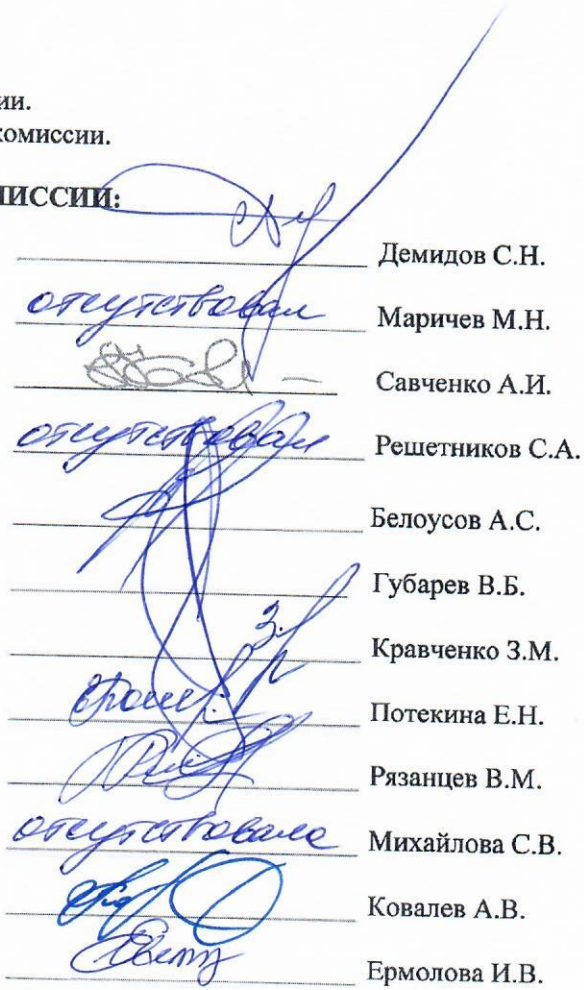 ии.
комиссии.
МИССИИ:
Демидов С.Н.
отсутствовал Маричев М.Н.
Савченко А.И.
отсутствовал Решетников С.А.
Белоусов А.С.
Губарев В.Б.
Кравченко З.М.
Потекина Е.Н.
Рязанцев В.М.
отсутствовала Михайлова С.В.
Ковалев А.В.
Ермолова И.В.